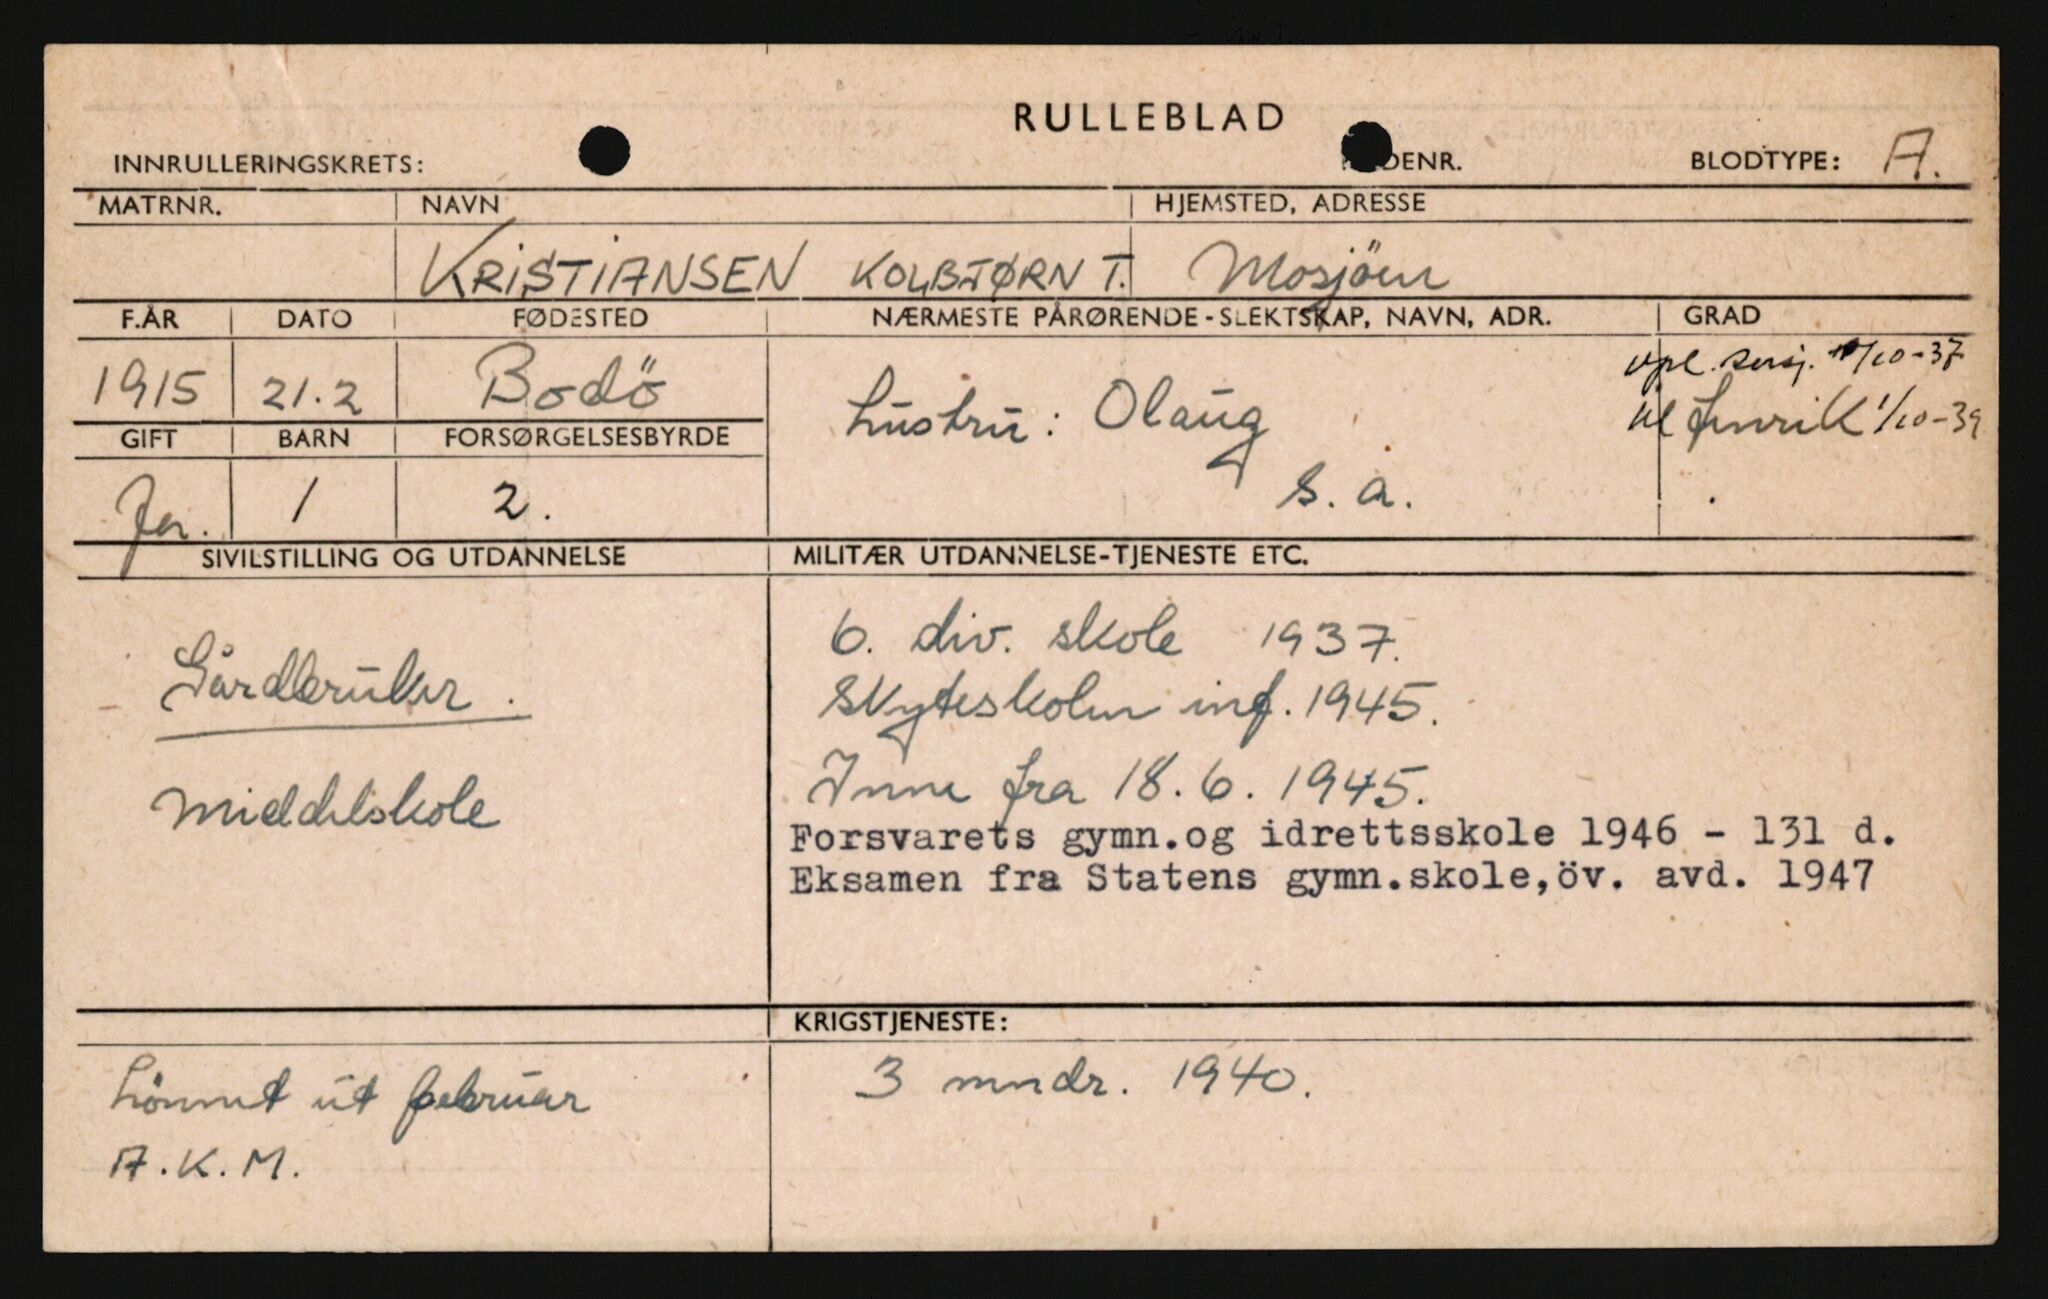 RULLEBLAD
INNRULLERINGSKRETS: DENR. BLODTYPE: A.
MATRNR. NAVN HJEMSTED, ADRESSE
KRISTIANSEN KOLBJØRN T. Mosjöen
F.ÅR DATO FØDESTED NÆRMESTE PÅRØRENDE-SLEKTSKAP, NAVN, ADR. GRAD
vpl. sersj. /10-37
1915 21.2 Bodö hustru: Olaug fenrik 1/10-39
GIFT BARN FORSØRGELSESBYRDE
Ja. 1 2. s.a.
SIVILSTILLING OG UTDANNELSE MILITÆR UTDANNELSE-TJENESTE ETC.
6. div. skole 1937.
Gårdbruker. Skyteskolen inf. 1945.
Inne fra 18.6.1945.
Middelskole
Forsvarets gymn.og idrettsskole 1946 - 131 d.
Eksamen fra Statens gymn.skole,öv. avd. 1947
KRIGSTJENESTE:
Lönnet ut februar 3 mndr. 1940.
A.K.M.